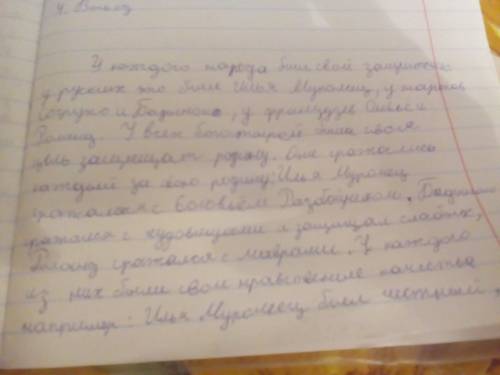 4. Вывод
У каждого народа был свой защитник
у русских это был Илья Муромец, у нартов
Сосруко и Батыноко, у французов Оливье и
Роланд. У всех богатырей была своя
цель защищать родину. Они сражались
каждый за свою родину: Илья Муромец
сражался с Соловьём Разбойником,
сражался с чудовищами и защищал слабых,
Роланд сражался с маврами. У каждого
из них были свои нравственные качества
например: Илья Муромец был честный,